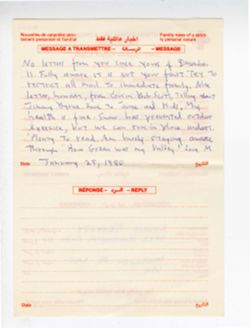 Nouvelles de caractère strictement personnel et familial
اخبار عائلية فقط
Family news of a strictly personal nature
MESSAGE A TRANSMETTRE - الرسالة - MESSAGE
No letter from you since yours of December
11. Fully aware it is not your fault. Try to
restrict all mail to immediate family. Nice
letter, however, from
Jimmy. Love to Jane and kids. My
health is fine. Snow has prevented outdoor
exercise, but we can run in place indoors.
Plenty to read. Am barely staying awake
through "How Green was my Valley." Love M
January 28, 1980
Date
التاريخ
RÉPONSE - الرد - REPLY
Date
التاريخ